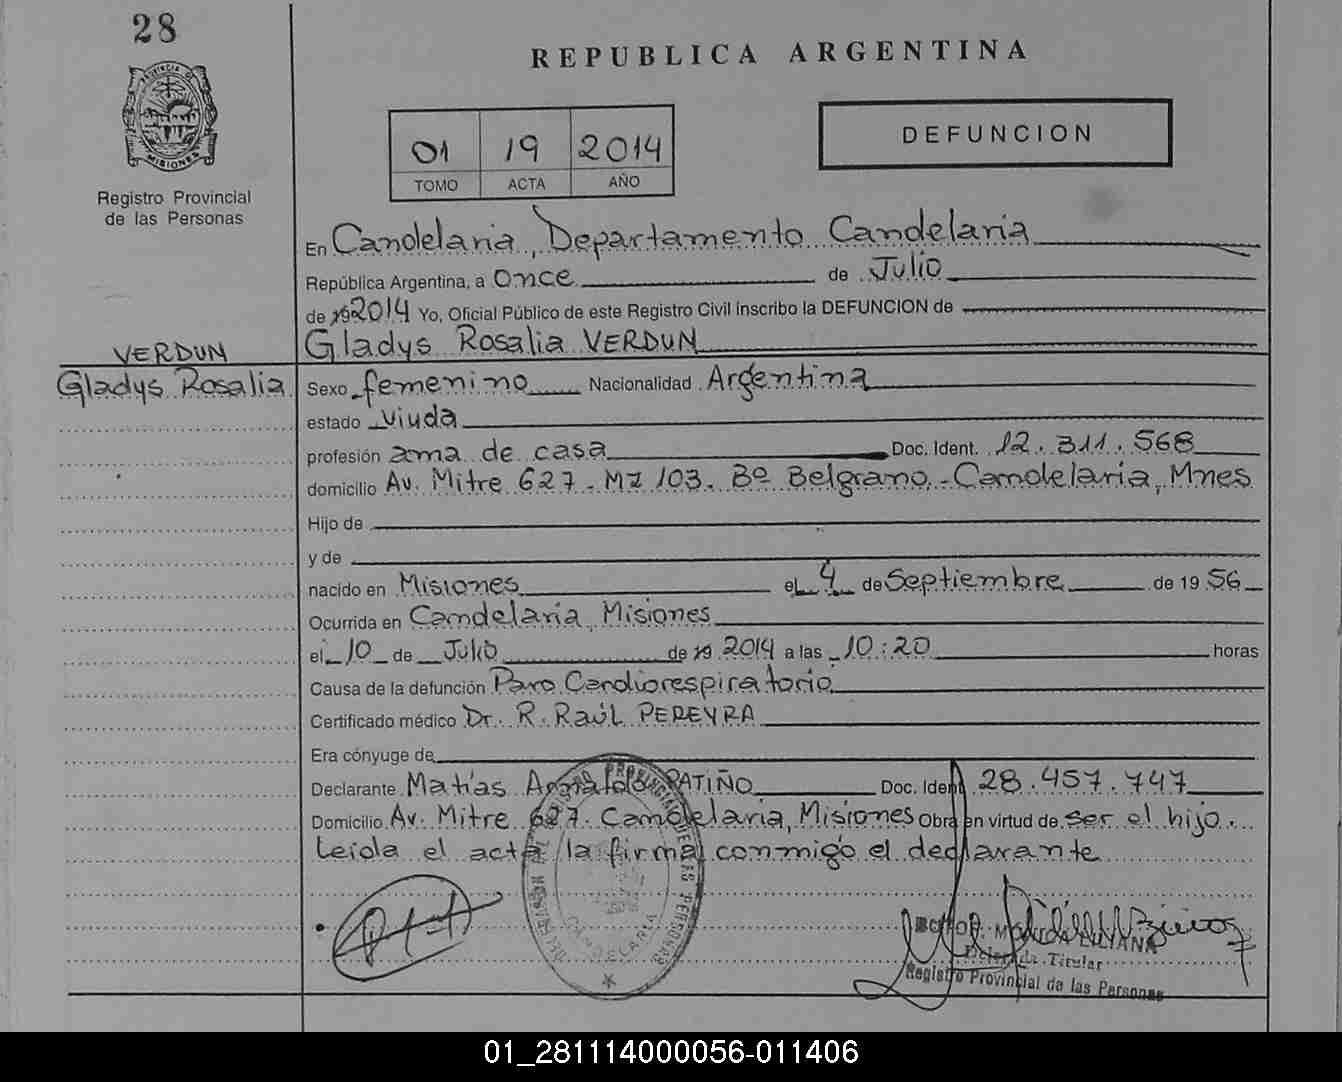 28
REPUBLICA ARGENTINA
PROVINCIA DE
MISIONES
Registro Provincial
de las Personas
01 19 2014
TOMO ACTA AÑO
DEFUNCION
En Candelaria, Departamento Candelaria
República Argentina, a Once de Julio
de 192014 Yo, Oficial Público de este Registro Civil inscribo la DEFUNCION de
VERDUN Gladys Rosalia VERDUN
Gladys Rosalia Sexo femenino Nacionalidad Argentina
estado viuda
profesión ama de casa Doc. Ident. 12.311.568
domicilio Av. Mitre 627. Mz 103. Bº Belgrano.- Candelaria, Mnes
Hijo de
y de
nacido en Misiones el 4 de Septiembre de 19 56
Ocurrida en Candelaria, Misiones
el 10 de Julio de 19 2014 a las 10:20 horas
Causa de la defunción Paro Cardiorespiratorio
Certificado médico Dr. R. Raúl PEREYRA
Era cónyuge de
Declarante Matías Arnaldo PATIÑO Doc. Ident 28.457.747
Domicilio Av. Mitre 627. Candelaria, Misiones Obra en virtud de ser el hijo.
Leida el acta la firma conmigo el declarante
PROVINCIAL DE LAS PERSONAS
CANDELARIA
MONICA LILIANA
Delegada Titular
Registro Provincial de las Personas
01_281114000056-011406